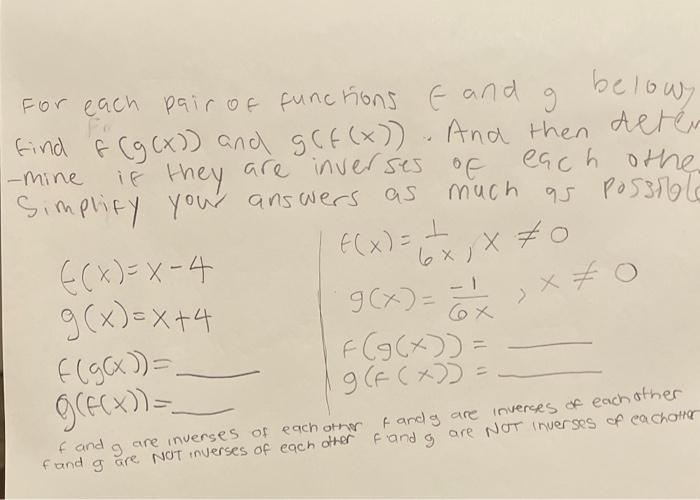 For each pair of functions f and g below,
find f(g(x)) and g(f(x)). And then deter
-mine if they are inverses of each othe
Simplify your answers as much as possible
f(x)=x-4
g(x)=x+4
f(g(x))=____
g(f(x))=____
f and g are inverses of each other
f and g are NOT inverses of each other
f(x)=1/6x, x ≠ 0
g(x)=-1/6x, x ≠ 0
f(g(x))=____
g(f(x))=____
f and g are inverses of each other
f and g are NOT inverses of each other